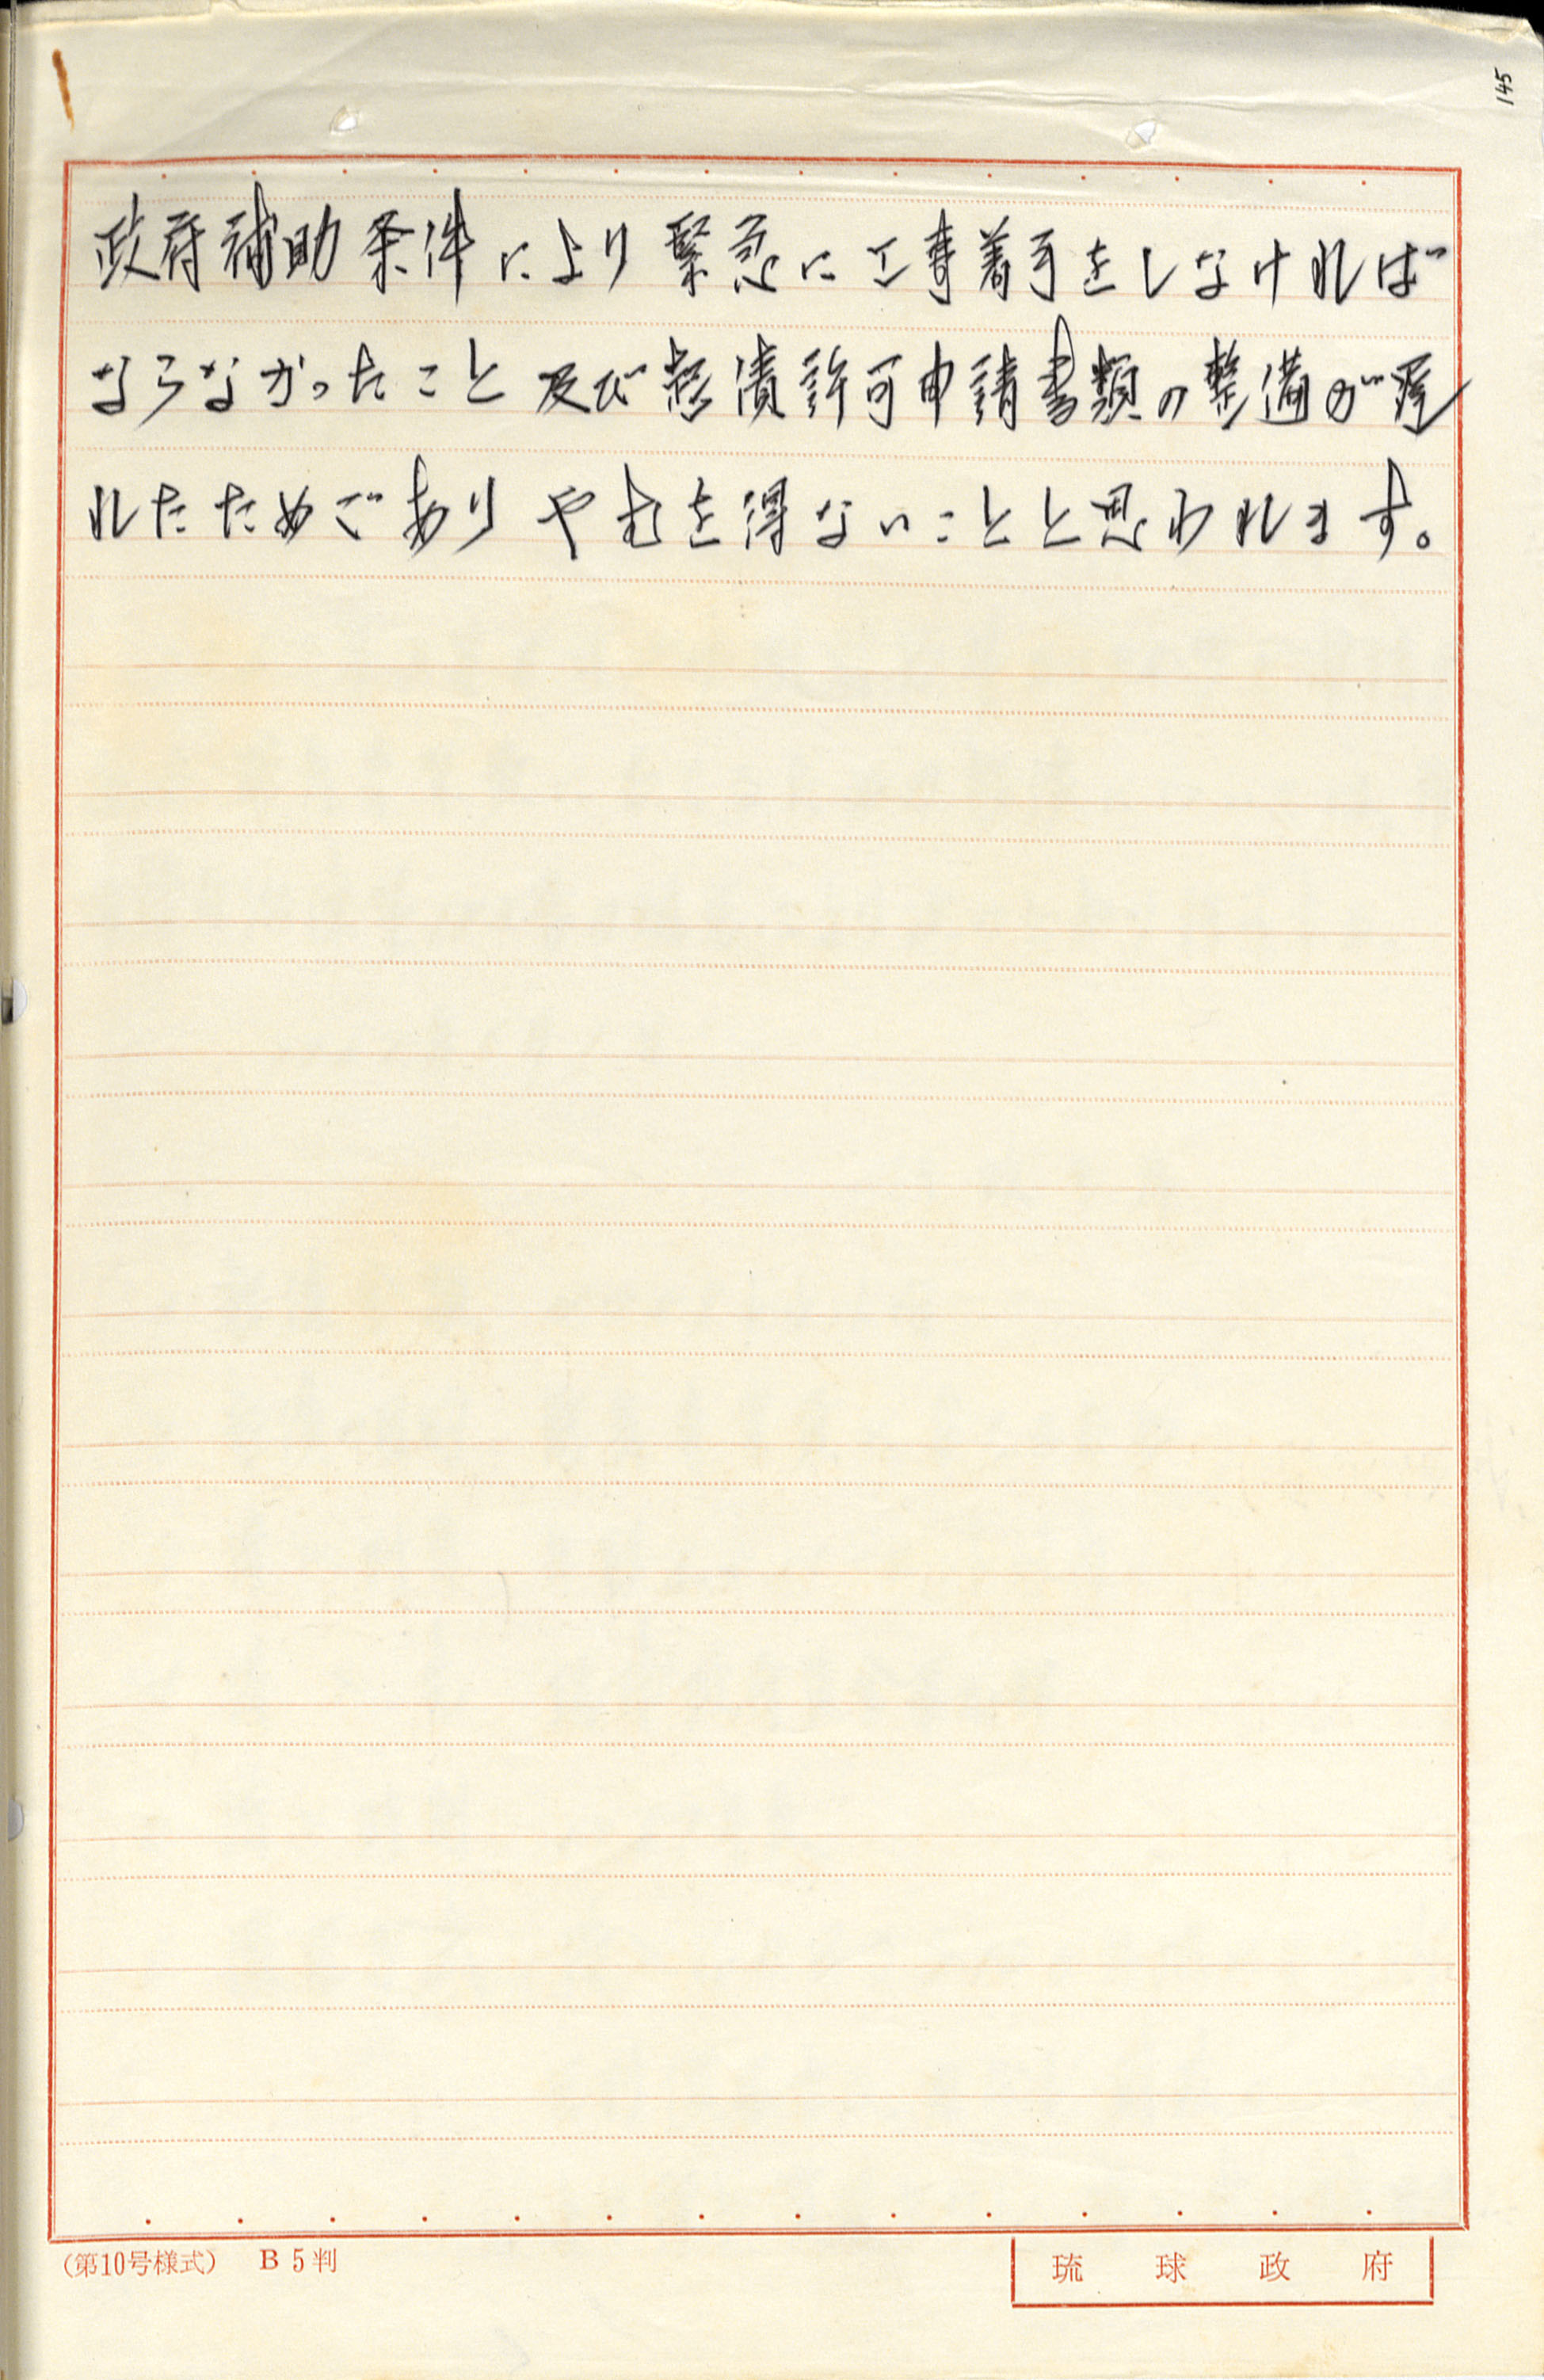 145
政府補助条件により緊急に工事着手をしなければ
ならなかったこと及び起債許可申請書類の整備が遅
れたためであり やむを得ないことと思われます。
(第10号様式) B5判
琉球政府